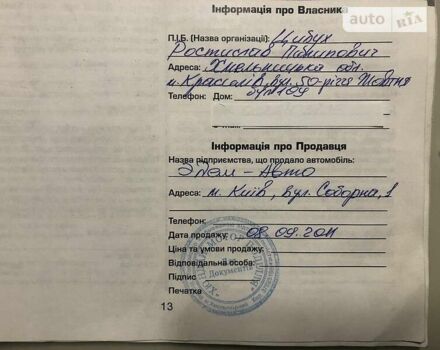 auto RIA
Інформація про Власника
П.І.Б. (Назва організації): Цибух
Ростислав Пилипович
Адреса: Хмельницька обл.
м. Красилів вул. 50-річчя Жовтня
Телефон: Дом: буд 109
Інформація про Продавця
Назва підприємства, що продало автомобіль:
Эдем - Авто
Адреса: м. Київ, вул. Соборна, 1
Телефон:
Дата продажу: 08.09.2011
Ціна та умови продажу:
Відповідальний особа:
Підпис
Печатка
Для Документів
13